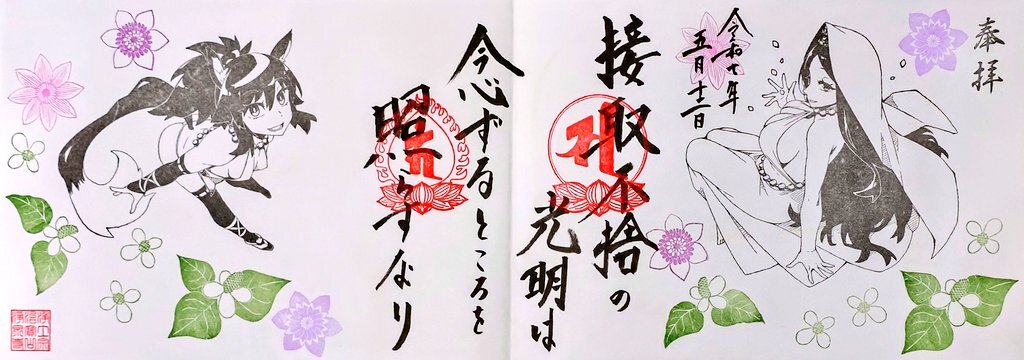 奉拝
令和七年
五月十二日
接取不捨の
光明は
念ずるところを
照らすなり